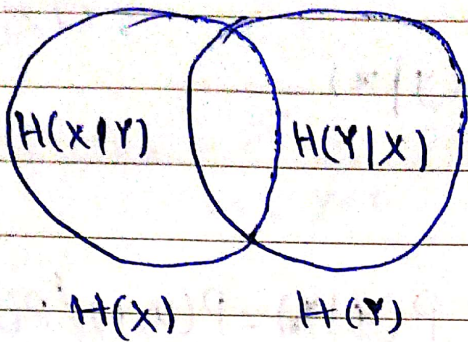 H(X|Y) H(Y|X)
H(X) H(Y)